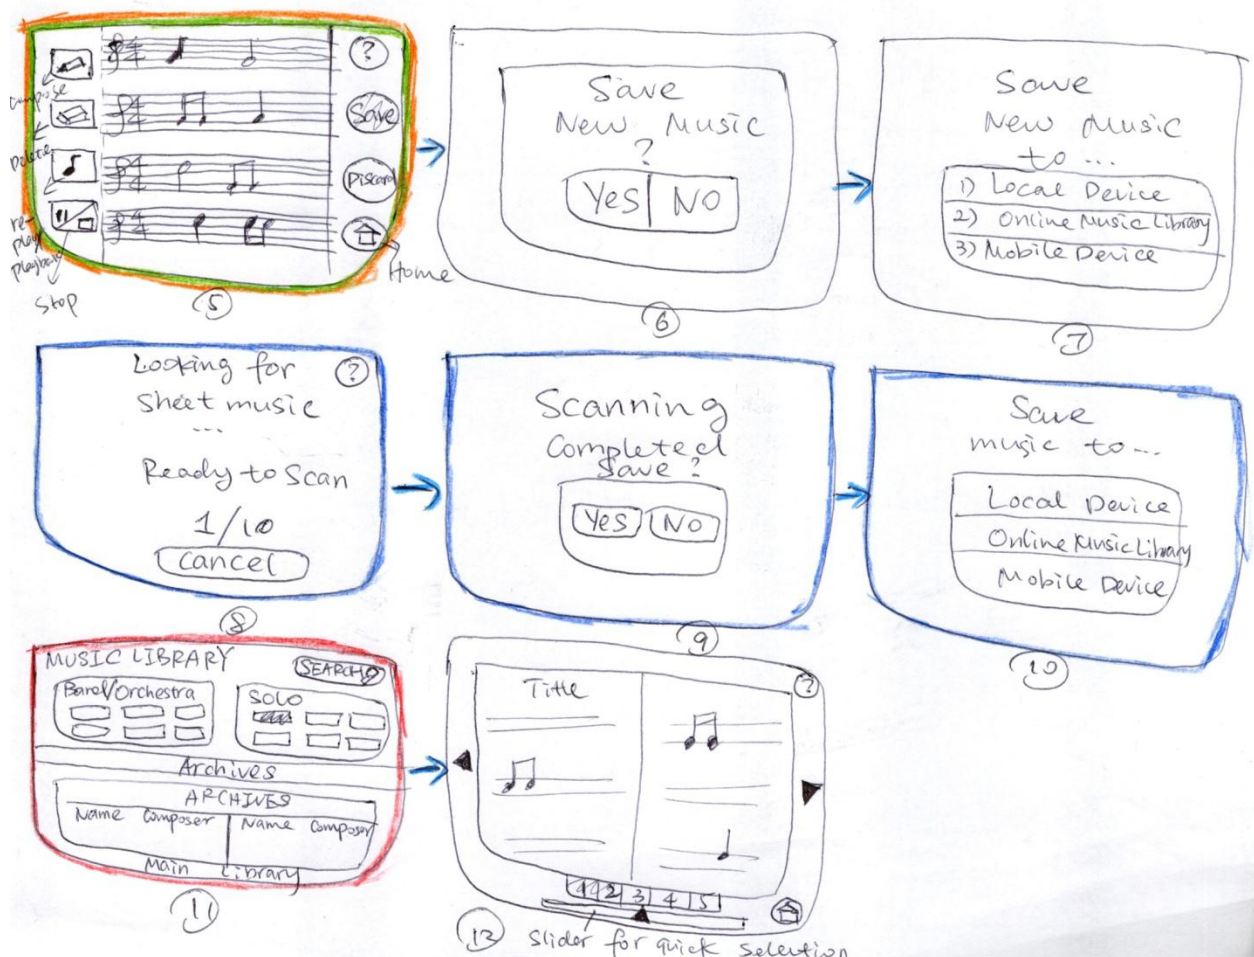 ?
compose
Save
Delete
Discard
re-
play
playback
Stop
Home
5
Save
New Music
?
Yes NO
6
Save
New Music
to...
1) Local Device
2) Online Music Library
3) Mobile Device
7
Looking for
?
Sheet music
...
Ready to Scan
1/10
Cancel
8
Scanning
Completed
Save?
Yes No
9
Save
music to...
Local Device
Online Music Library
Mobile Device
10
MUSIC LIBRARY
SEARCH
Band/Orchestra
SOLO
Archives
ARCHIVES
Name Composer Name Composer
Main Library
11
?
Title
1 2 3 4 5
12
Slider for quick selection